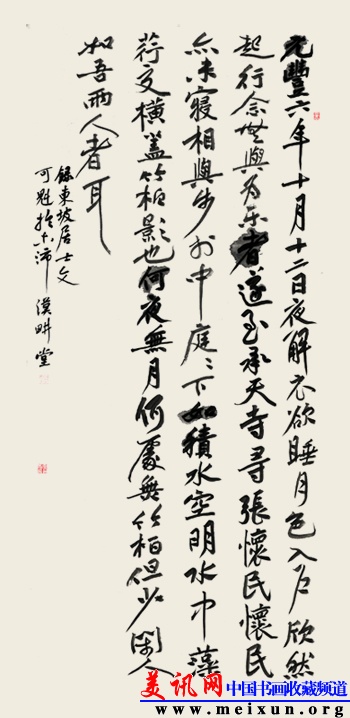 元豐六年十月十二日夜解衣欲睡月色入户欣然
起行念無與為乐者遂至承天寺尋張懷民懷民
亦未寢相與步於中庭〻下如積水空明水中藻
荇交橫蓋竹柏影也何夜無月何處無竹柏但少閑人
如吾兩人者耳
錄東坡居士文
漢畊堂
美讯网 中国书画收藏频道
www.meixun.org